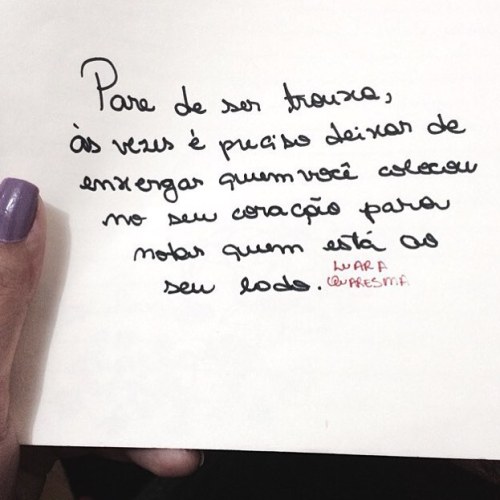 Pare de ser trouxa,
às vezes é preciso deixar de
enxergar quem você colocou
no seu coração para
notar quem está ao
seu lado.
LUARA
QUARESMA